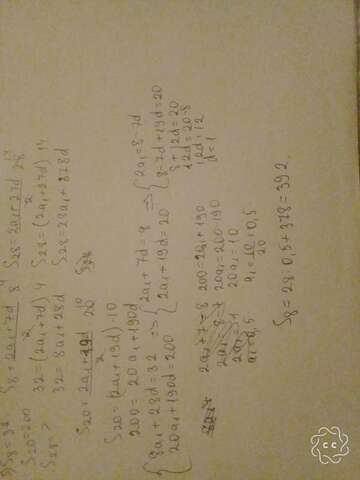 S8=32
S20=200
S28-?
S8 = 2a1+7d / 2 · 8
32=(2a1+7d) 4
32 = 8a1+28d
S28=2a1+27d / 2 · 28
S28=(2a1+27d) 14
S28=28a1+378d
S20 = 2a1+19d / 2 · 20
S20=(2a1+19d)·10
200= 20a1+190d
{8a1+28d=32
20a1+190d=200
=> {2a1+7d=8
2a1+19d=20
=> {2a1=8-7d
8-7d+19d=20
8+12d=20
12d=20-8
12d=12
d=1
2a1+7=8
2a1=8-7
2a1=1
a1=0,5
200=20a1+190
20a1=200-190
20a1=10
a1=10/20=0,5
S8=28·0,5+378=392.
CC